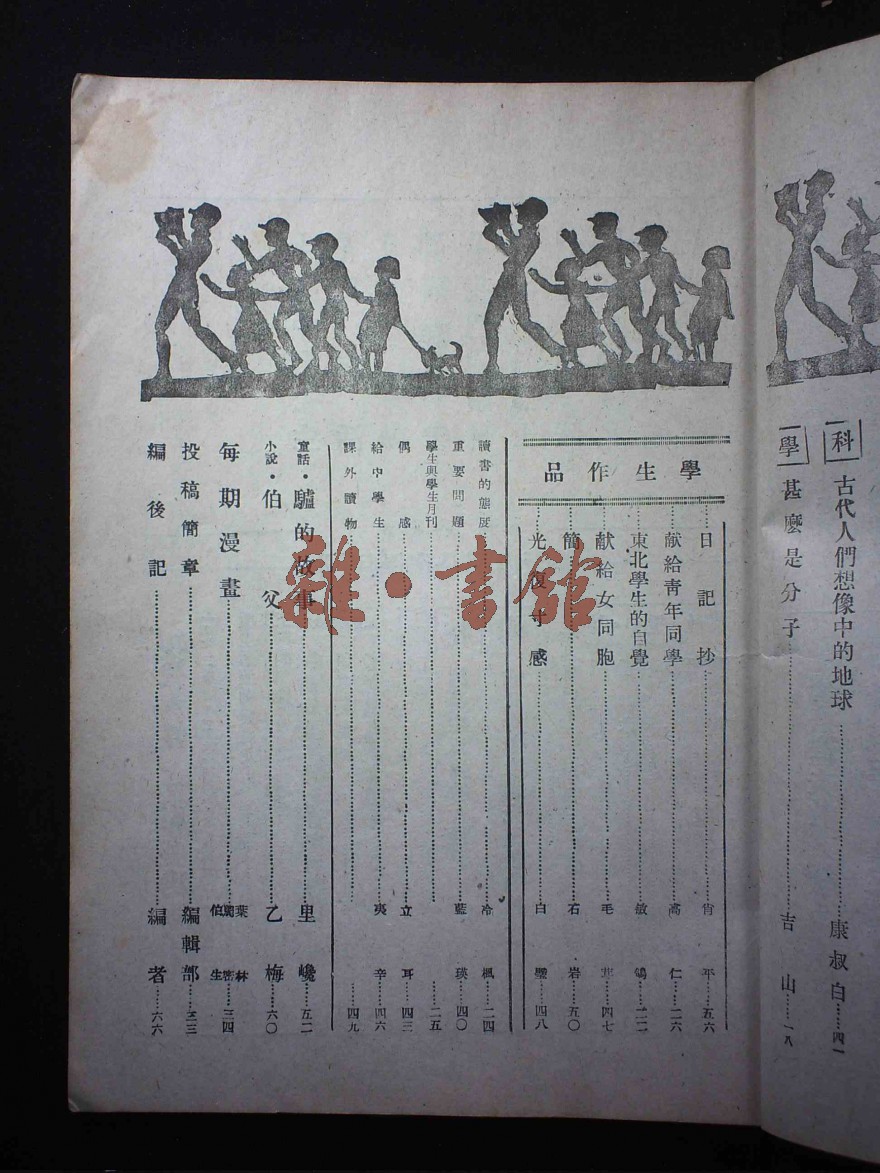 科
古代人們想像中的地球……康叔白……四一
學
甚麼是分子……吉山……一八
學生作品
日記抄……肯平……五六
献給青年同學……高仁……二六
東北學生的自覺……敏鳴……二二
献給女同胞……毛……四七
簡……石岩……五〇
光復寸感……白璧……四八
讀書的態度……冷楓……二四
重要問題……藍瑛……四〇
學生與學生月刊……二五
偶感……立耳……四三
給中學生……夷辛……四六
課外讀物……四九
童話·驢的故事……里巉……五二
小說·伯父……乙梅……六〇
每期漫畫……葉林 伯生……三四
投稿簡章……編輯部……三三
編後記……編者……六六
雜·書館